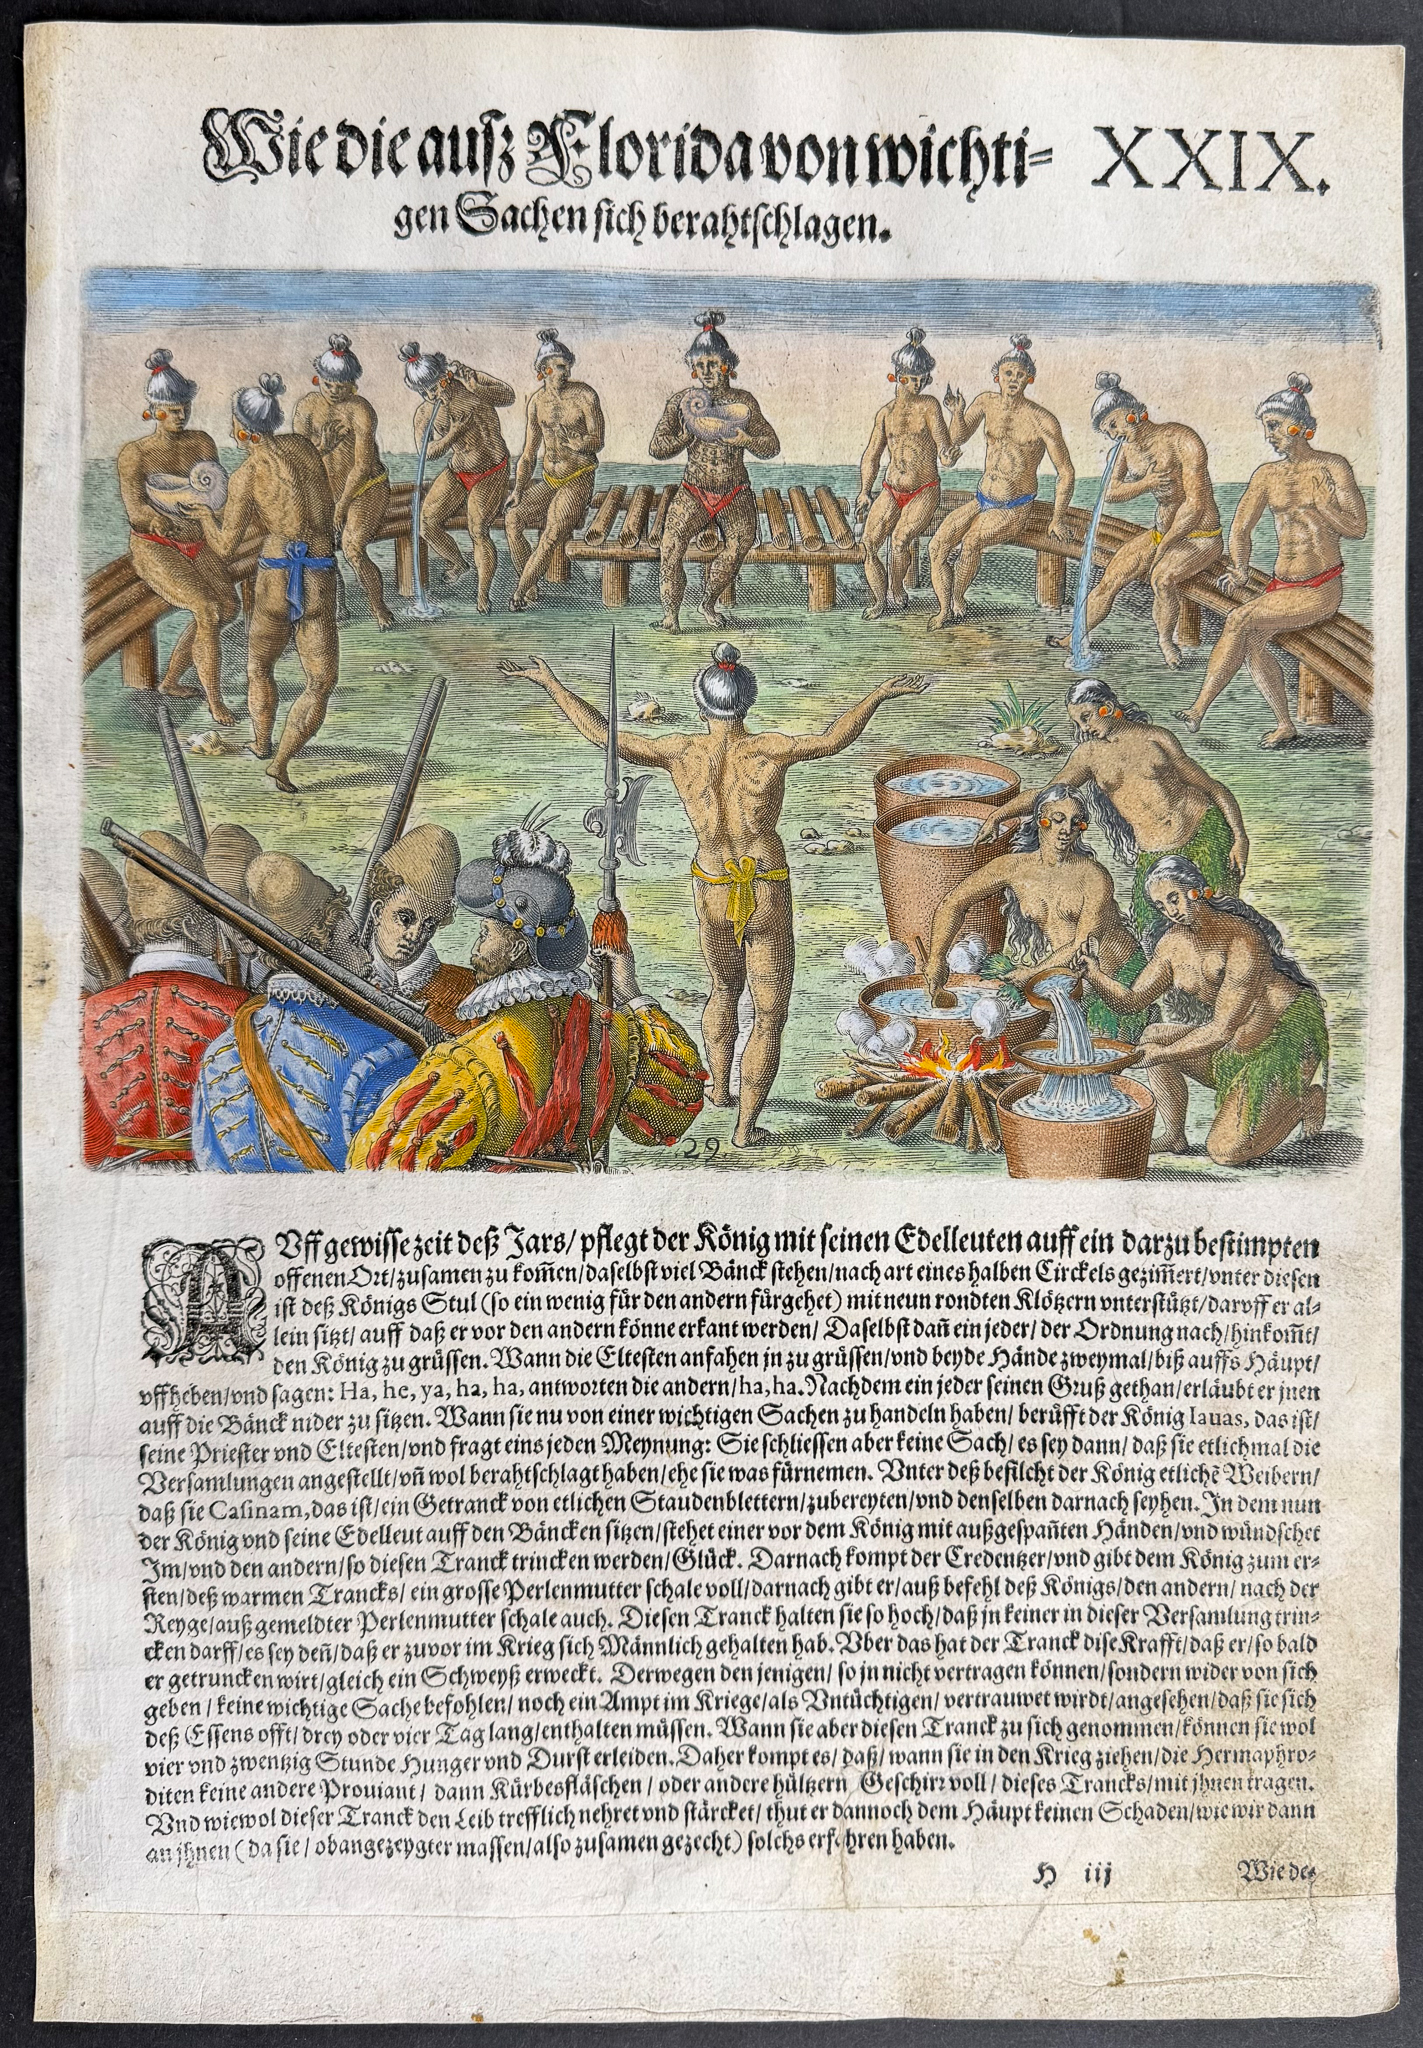 Wie die ausz Florida von wichti= XXIX.
gen Sachen sich berahtschlagen.
29.
AUff gewisse zeit deß Jars/ pflegt der König mit seinen Edelleuten auff ein darzu bestimpten
offenen Ort/ zusamen zu kom̃en/ daselbst viel Bänck stehen/ nach art eines halben Circkels gezim̃ert/ vnter diesen
ist deß Königs Stul (so ein wenig für den andern fürgehet) mit neun rondten Klötzern vnterstützt/ darvff er al=
lein sitzt/ auff daß er vor den andern könne erkant werden/ Daselbst dañ ein jeder/ der Ordnung nach/ hinkom̃t/
den König zu grüssen. Wann die Eltesten anfahen jn zu grüssen/ vnd beyde Hände zweymal/ biß auffs Häupt/
vffheben/ vnd sagen: Ha, he, ya, ha, ha, antworten die andern/ ha, ha. Nachdem ein jeder seinen Gruß gethan/ erläubt er jnen
auff die Bänck nider zu sitzen. Wann sie nu von einer wichtigen Sachen zu handeln haben/ berüfft der König Iauas, das ist/
seine Priester vnd Eltesten/ vnd fragt eins jeden Meynung: Sie schliessen aber keine Sach/ es sey dann/ daß sie etlichmal die
Versamlungen angestellt/ vñ wol berahtschlagt haben/ ehe sie was fürnemen. Vnter deß befilcht der König etlichẽ Weibern/
daß sie Casinam, das ist/ ein Getranck von etlichen Staudenblettern/ zubereyten/ vnd denselben darnach seyhen. In dem nun
der König vnd seine Edelleut auff den Bäncken sitzen/ stehet einer vor dem König mit außgespañten Händen/ vnd wündschet
Im/ vnd den andern/ so diesen Tranck trincken werden/ Glück. Darnach kompt der Credentzer/ vnd gibt dem König zum er=
sten/ deß warmen Trancks/ ein grosse Perlenmutter schale voll/ darnach gibt er/ auß befehl deß Königs/ den andern/ nach der
Reyge/ auß gemeldter Perlenmutter schale auch. Diesen Tranck halten sie so hoch/ daß jn keiner in dieser Versamlung trin=
cken darff/ es sey deñ/ daß er zuvor im Krieg sich Männlich gehalten hab. Vber das hat der Tranck dise Krafft/ daß er/ so bald
er getruncken wirt/ gleich ein Schweyß erweckt. Derwegen den jenigen/ so jn nicht vertragen können/ sondern wider von sich
geben/ keine wichtige Sache befohlen/ noch ein Ampt im Kriege/ als Vntüchtigen/ vertrauwet wirdt/ angesehen/ daß sie sich
deß Essens offt/ drey oder vier Tag lang/ enthalten müssen. Wann sie aber diesen Tranck zu sich genommen/ können sie wol
vier vnd zwentzig Stunde Hunger vnd Durst erleiden. Daher kompt es/ daß/ wann sie in den Krieg ziehen/ die Hermaphro=
diten keine andere Prouiant/ dann Kürbesfläschen/ oder andere hültzern Geschirr voll/ dieses Trancks/ mit jhnen tragen.
Vnd wiewol dieser Tranck den Leib trefflich nehret vnd stärcket/ thut er dannoch dem Häupt keinen Schaden/ wie wir dann
an jhnen (da sie/ obangezeygter massen/ also zusamen gezecht) solchs erfahren haben.
H iij Wie de=